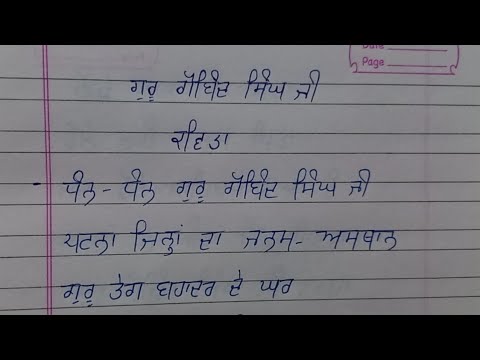 Date
Page
ਗੁਰੂ ਗੋਬਿੰਦ ਸਿੰਘ ਜੀ
ਕਵਿਤਾ
ਧੰਨ - ਧੰਨ ਗੁਰੂ ਗੋਬਿੰਦ ਸਿੰਘ ਜੀ
ਪਟਨਾ ਜਿਨ੍ਹਾਂ ਦਾ ਜਨਮ - ਅਸਥਾਨ
ਗੁਰੂ ਤੇਗ ਬਹਾਦਰ ਦੇ ਘਰ